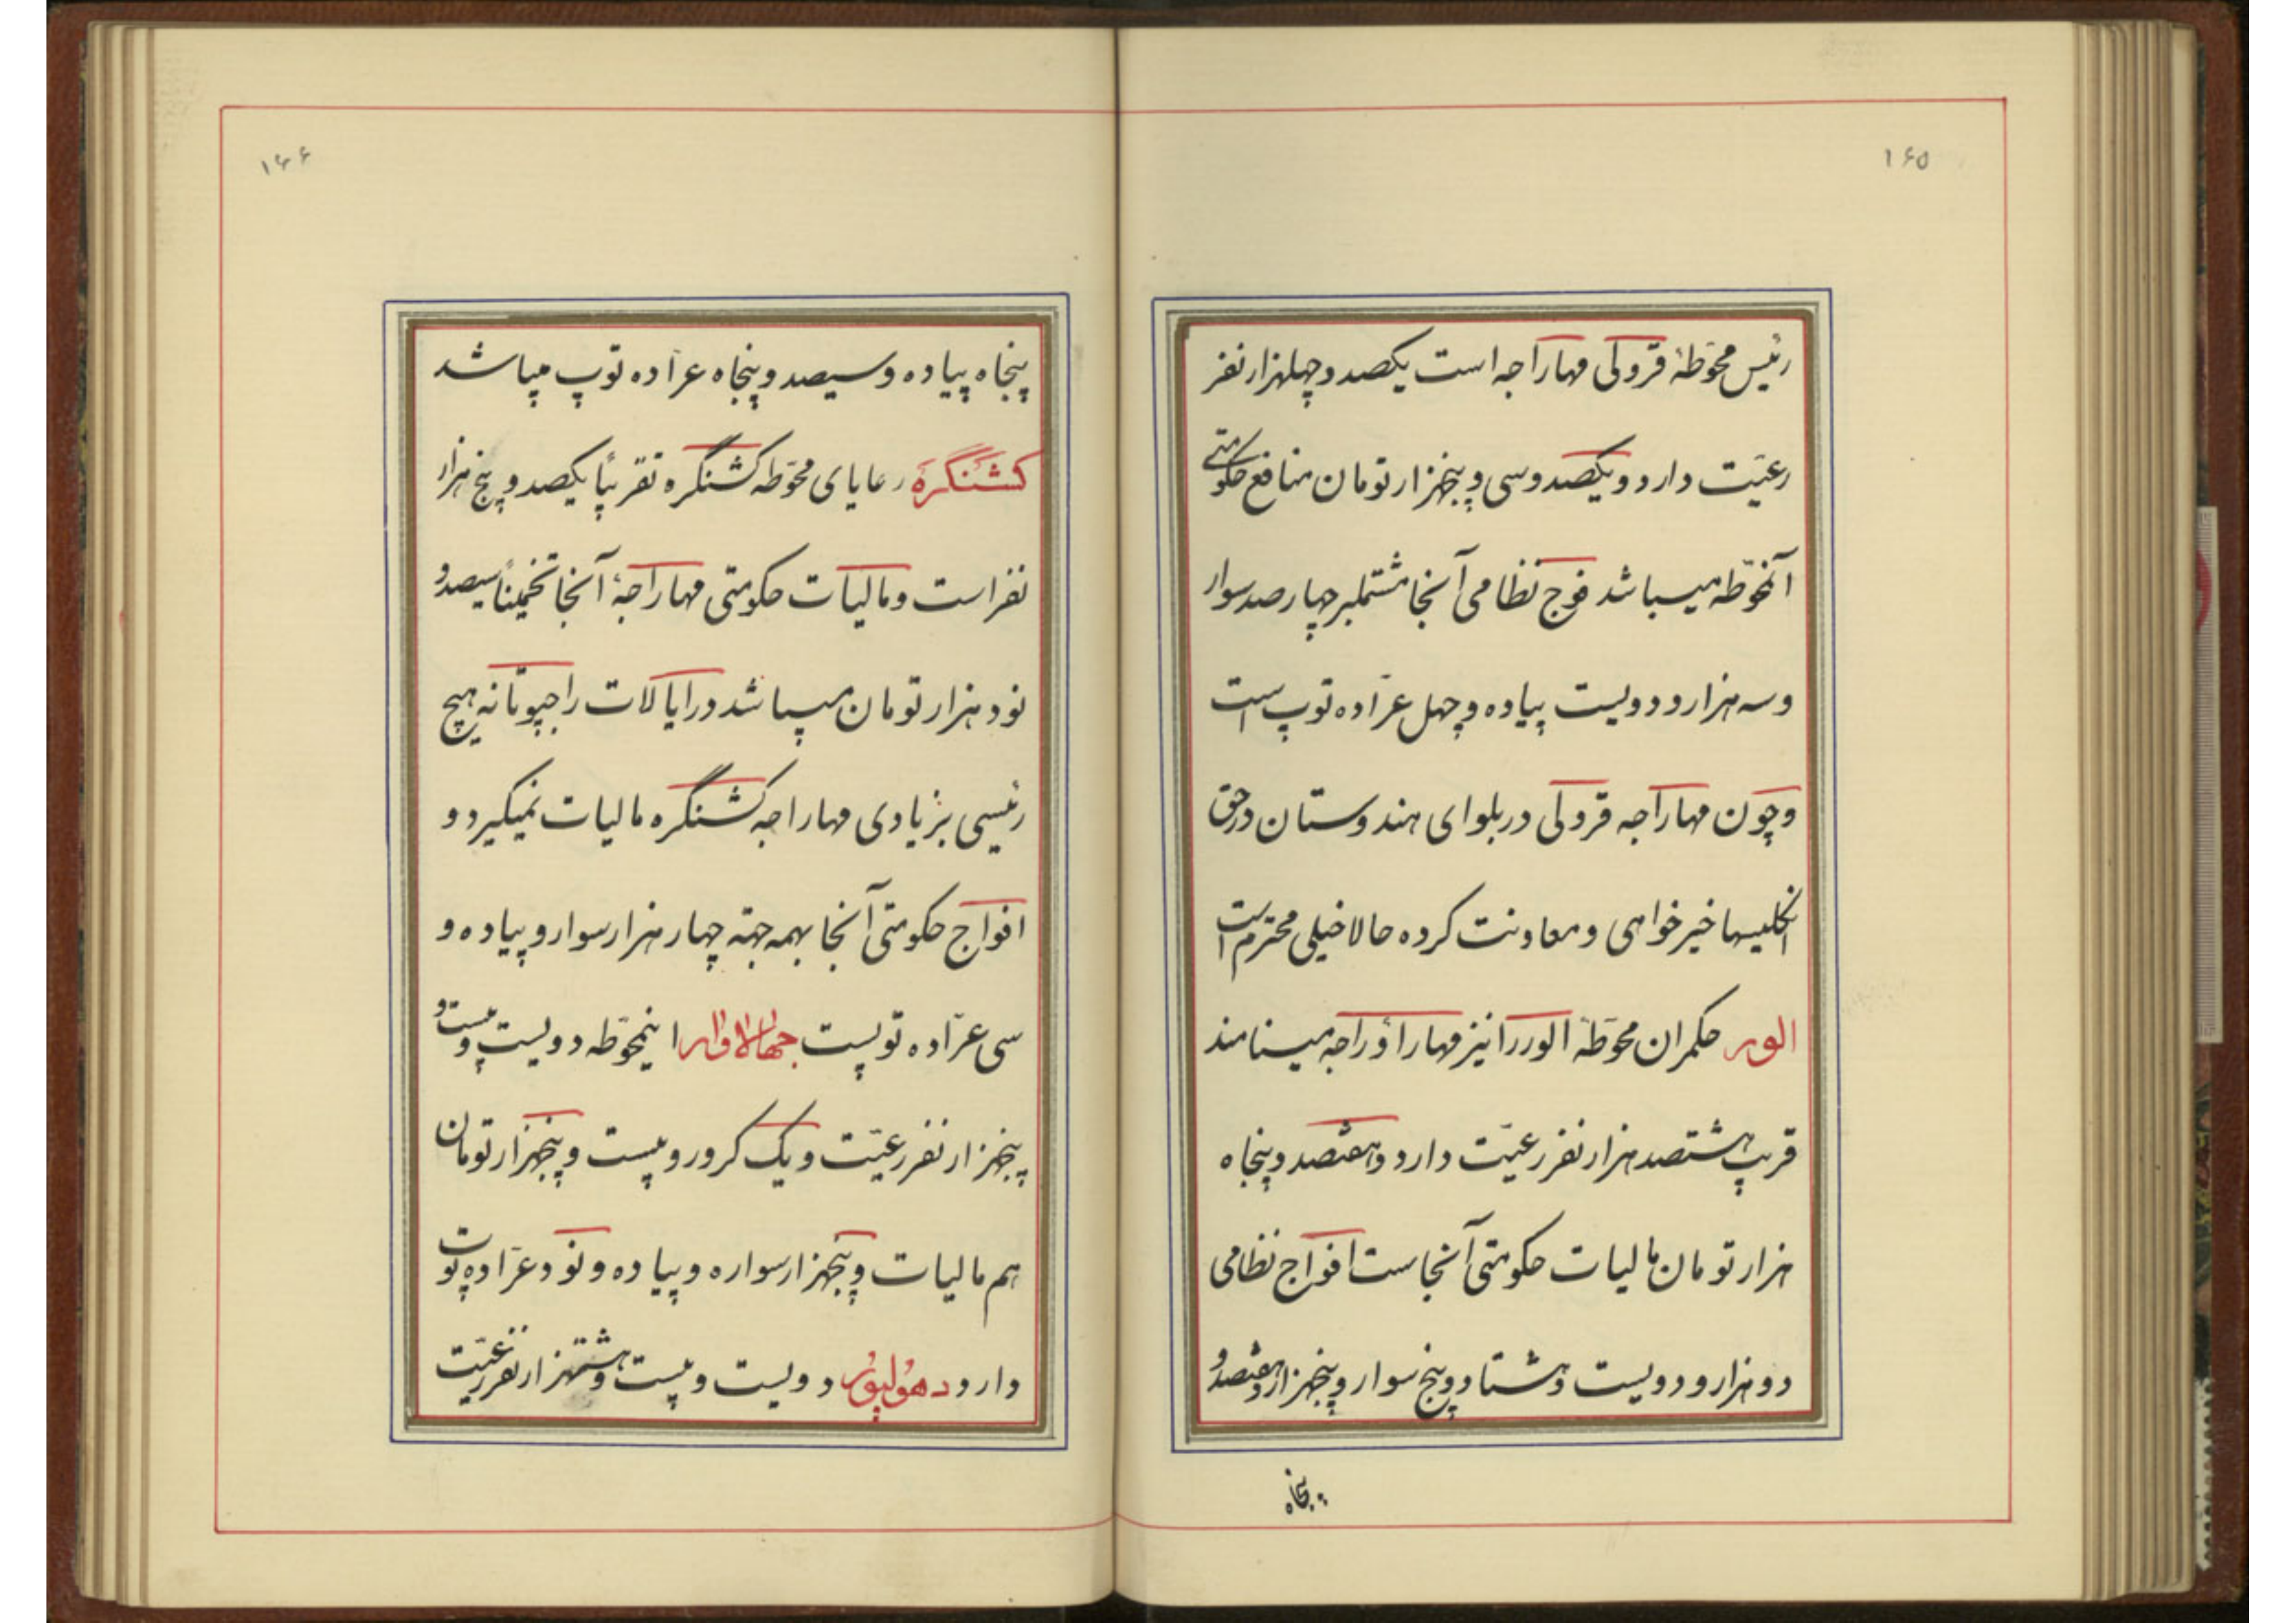 ۱۶۵
رئیس محوّطهٔ قرولی مهاراجه است یکصد و چهلهزار نفر
رعیّت دارد و یکصد و سی و پنجهزار تومان منافع حکومتی
آنمحوّطه میباشد فوج نظامی آنجا مشتملبر چهارصد سوار
و سه هزار و دویست پیاده و چهل عرّاده توپ است
و چون مهاراجه قرولی در بلوای هندوستان در حق
انگلیسها خیرخواهی و معاونت کرده حالا خیلی محترم است
الور حکمران محوّطهٔ الور را نیز مهاراؤ راجه مینامند
قریب هشتصد هزار نفر رعیّت دارد و هفتصد و پنجاه
هزار تومان مالیات حکومتی آنجاست افواج نظامی
دو هزار و دویست و هشتاد و پنج سوار و پنجهزار و هفتصد و
پنجاه
۱۶۶
پنجاه پیاده و سیصد و پنجاه عرّاده توپ میباشد
کشنگره رعایای محوّطه کشنگره تقریباً یکصد و پنج هزار
نفر است و مالیات حکومتی مهاراجهٔ آنجا تخمیناً سیصد و
نود هزار تومان میباشد در ایالات راجپوتانه هیچ
رئیسی بزیادی مهاراجه کشنگره مالیات نمیگیرد و
افواج حکومتی آنجا بهمه جهته چهار هزار سوار و پیاده و
سی عرّاده توپست جهالاوار اینمحوّطه دویست و بیست و
پنجهزار نفر رعیّت و یک کرور و بیست و پنجهزار تومان
هم مالیات و پنجهزار سواره و پیاده و نود عرّاده توپ
دارد دهولپور دویست و بیست و هشتهزار نفر رعیّت